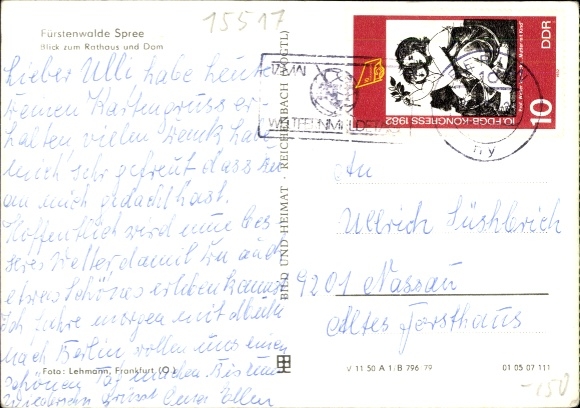 15517
Fürstenwalde Spree
Blick zum Rathaus und Dom
Lieber Ulli habe heute
Deinen Kartengruss er-
halten, vielen Dank habe
mich sehr gefreut dass Du
an mich gedacht hast.
Hoffentlich wird nun bes-
seres Wetter, damit Du auch
etwas Schönes erleben kannst
Ich fahre morgen mit
nach Berlin wollen uns einen
schönen Tag machen Bis zum
Wiedersehen grüsst
Foto: Lehmann, Frankfurt (O.)
BILD UND HEIMAT · REICHENBACH (VOGTL)
WELTFERNMELDETAG
10. FDGB-KONGRESS 1982
DDR
10
An
Ullrich
9201 Nassau
Altes Forsthaus
V 11 50 A 1/B 796/79
01 05 07 111
-150